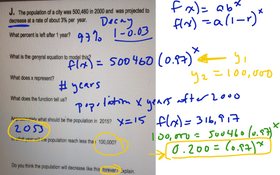 f(x) = ab^x
J. The population of a city was 500,460 in 2000 and was projected to
decrease at a rate of about 3% per year.
Decay
f(x) = a(1-r)^x
What percent is left after 1 year?
97% 1-0.03
What is the general equation to model this?
f(x) = 500460 (0.97)^x
y1
y2 = 100,000
What does x represent?
# years
What does the function tell us?
population x years after 2000
what should the population be in 2015?
x=15 f(x) = 316,917
2053
population reach less than 100,000?
100,000 = 500460(0.97)^x
0.200 = (0.97)^x
Do you think the population will decrease like that forever?